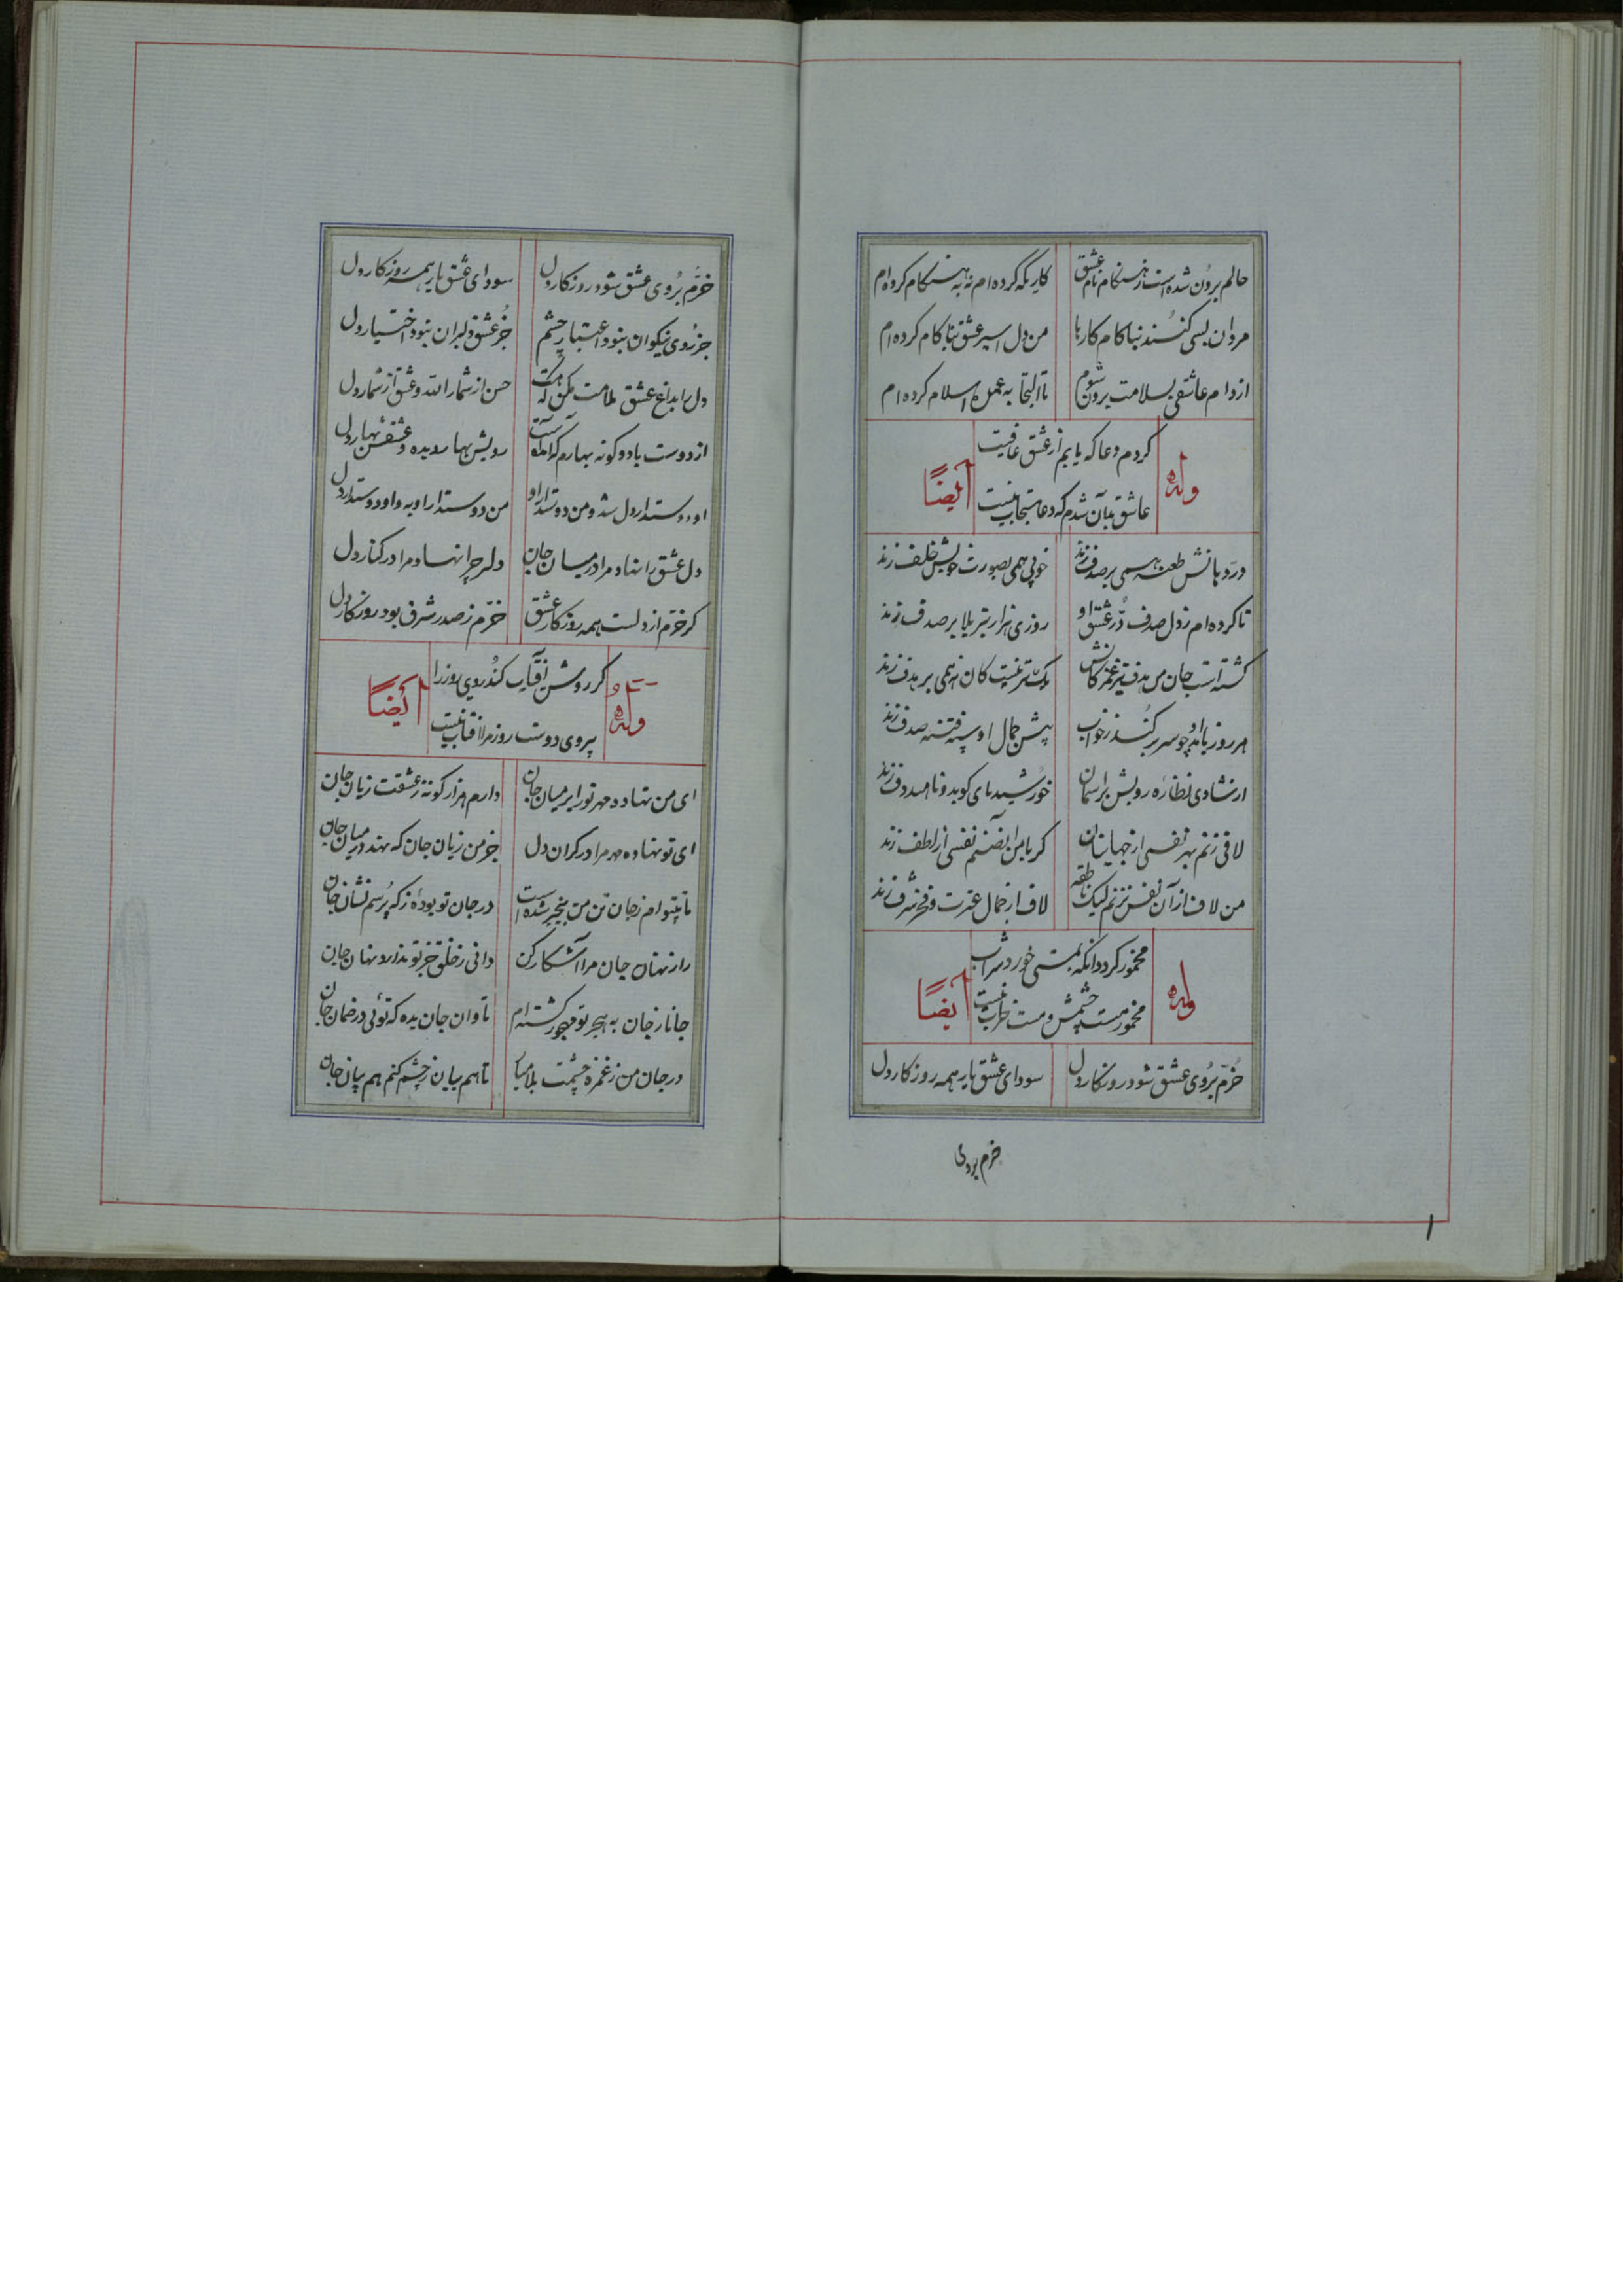 حالم برون شده است ز هنگام نام عشق کاریکه کرده ام نه به هنگام کرده ام
مردان بسی کنند بناکام کارها من دل اسیر عشق بناکام کرده ام
از دام عاشقی بسلامت برون شوم تا التجا به عمدهٔ اسلام کرده ام
وله
کردم دعا که یابم از عشق عافیت
عاشق بدآن شدم که دعا مستجاب نیست
ایضاً
در دهانش طعنه همی بر صدف زند خوبی همی بصورت خویش خلف زند
تا کرده ام ز دل صدف دُر عشق او روزی هزار تیر بلا بر صدف زند
گشته است جان من هدف تیر غمزه کانش یک تیر نیست کان نه همی بر هدف زند
هر روز بامداد چو سر بر کند ز خواب پیش جمال او سپه فتنه صف زند
از شادی نظاره رویش بر آسمان خورشید پای کوبد و ناهید دف زند
لافی زنم بهر نفسی از جهانیان گر با من آن صنم نفسی از لطف زند
من لاف از آن نفس نزنم لیک ناطقه لاف از جمال عترت و فخر شرف زند
وله
مخمور گردد آنکه بمستی خورد شراب
مخمور مست چشمش و مست خراب نیست
ایضاً
خُرّم بُروی عشق شود روزگار دل سودای عشق یار همه روزکار دل
خرم بروی
۱
خرّم بُروی عشق شود روزکار دل سودای عشق یار همه روزکار دل
جز رُوی نیکوان نبود اعتبار چشم جُز عشق دلبران نبود اختیار دل
دل را بداغ عشق ملامت مکن که هست حسن از شمار الله و عشق از شمار دل
از دوست با دو گونه بهارم که آمده است رویش بهار دیده و عشقش بهار دل
او دوستدار دل شد و من دوستدار او من دوستدار او به و او دوستدار دل
دل عشق را نهاد مرا در میان جان دلبر چرا نهاد مرا در کنار دل
گر خرّم از دلست همه روزکار عشق خرّم ز صدر شرف بود روزکار دل
وله
گر روشن آفتاب کُند روی روز را
بیروی دوست روز مرا آفتاب نیست
ایضاً
ای من نهاده مهر تو را بر میان جان دارم هزار گونه ز عشقت زیان جان
ای تو نهاده مهر مرا در کران دل جز من زیان جان که نهد در میان جان
تا بیتوام ز جان تن من بیخبر شده است در جان تو بودهٔ ز که پُرسم نشان جان
راز نهان جان مرا آشکار کن دانی ز خلق جز تو ندارد نهان جان
جانا ز جان به هجر تو مهجور گشته ام تاوان جان بده که توئی در ضمان جان
در جان من ز غمزه چشمت بلا میا تا هم بیان ز چشم کنم هم بیان جان